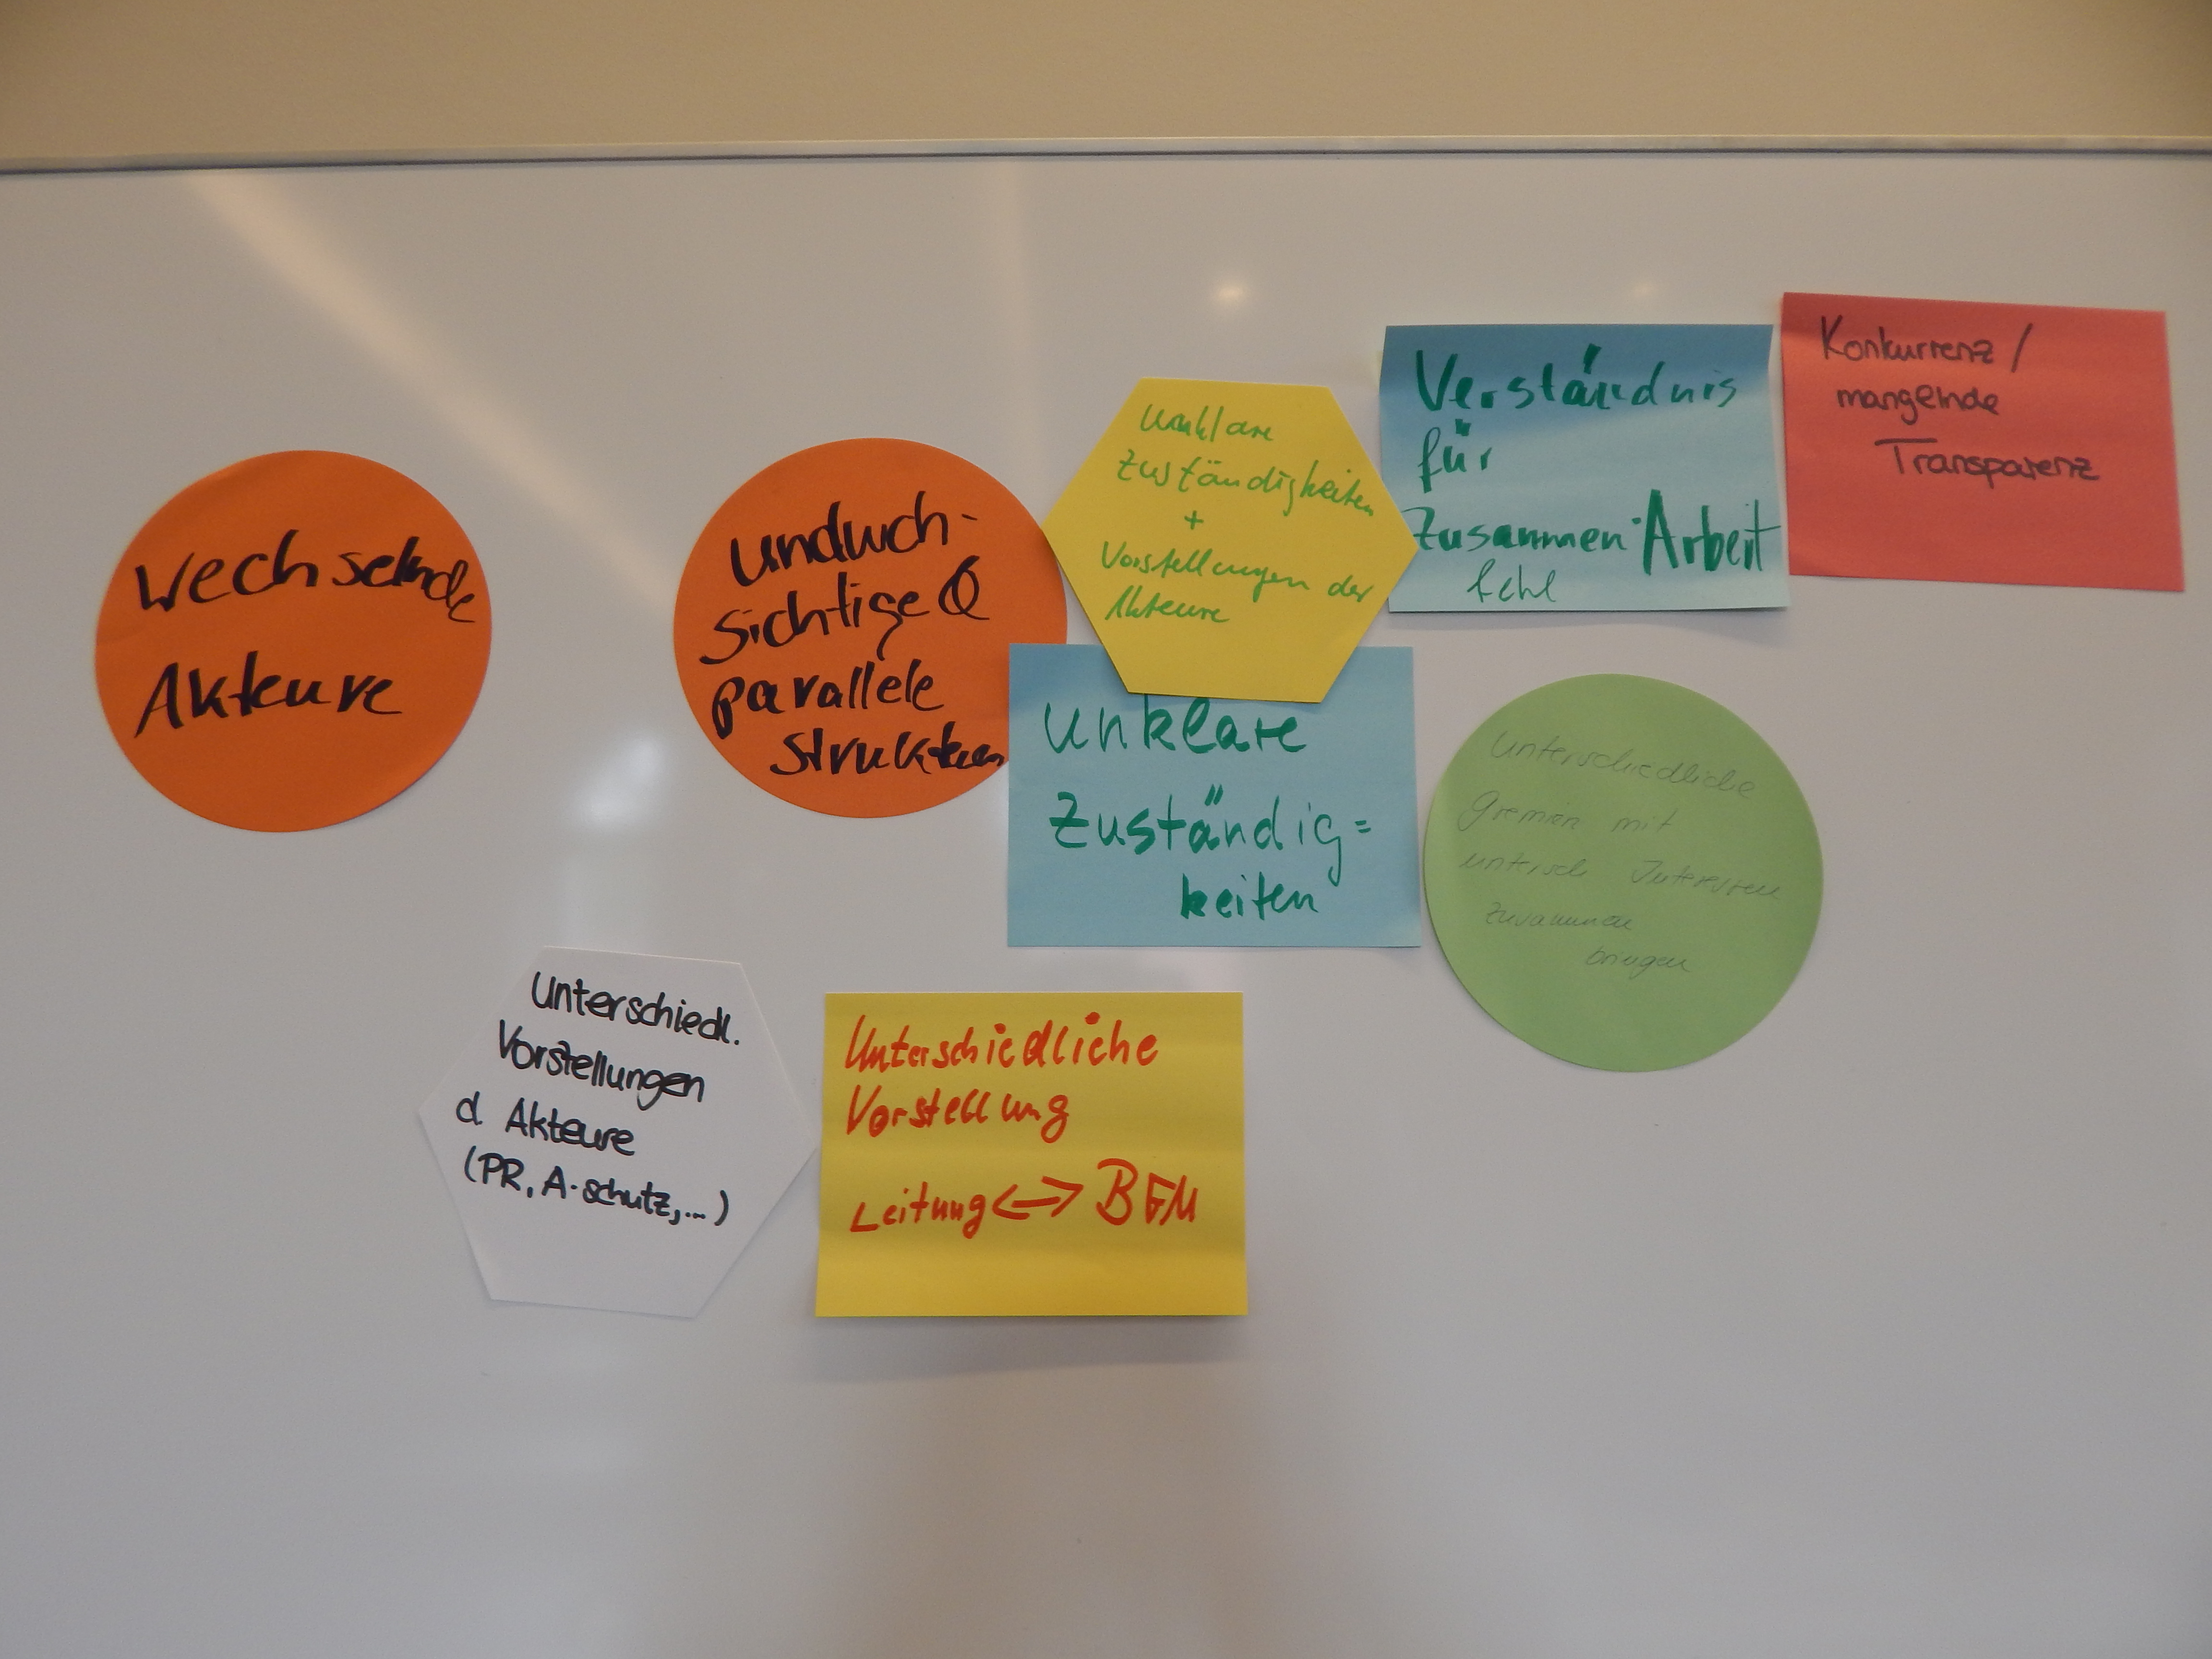 Wechselnde
Akteure
Undurch-
sichtige &
parallele
Strukturen
Unklare
Zuständigkeiten
+
Vorstellungen der
Akteure
Verständnis
für
Zusammen-Arbeit
fehl
Konkurrenz /
mangelnde
Transparenz
Unklare
Zuständig=
keiten
Unterschiedliche
Gremien mit
untersch Interessen
zusammen
bringen
Unterschiedl.
Vorstellungen
d. Akteure
(PR, A-schutz,...)
Unterschiedliche
Vorstellung
Leitung <=> BGM